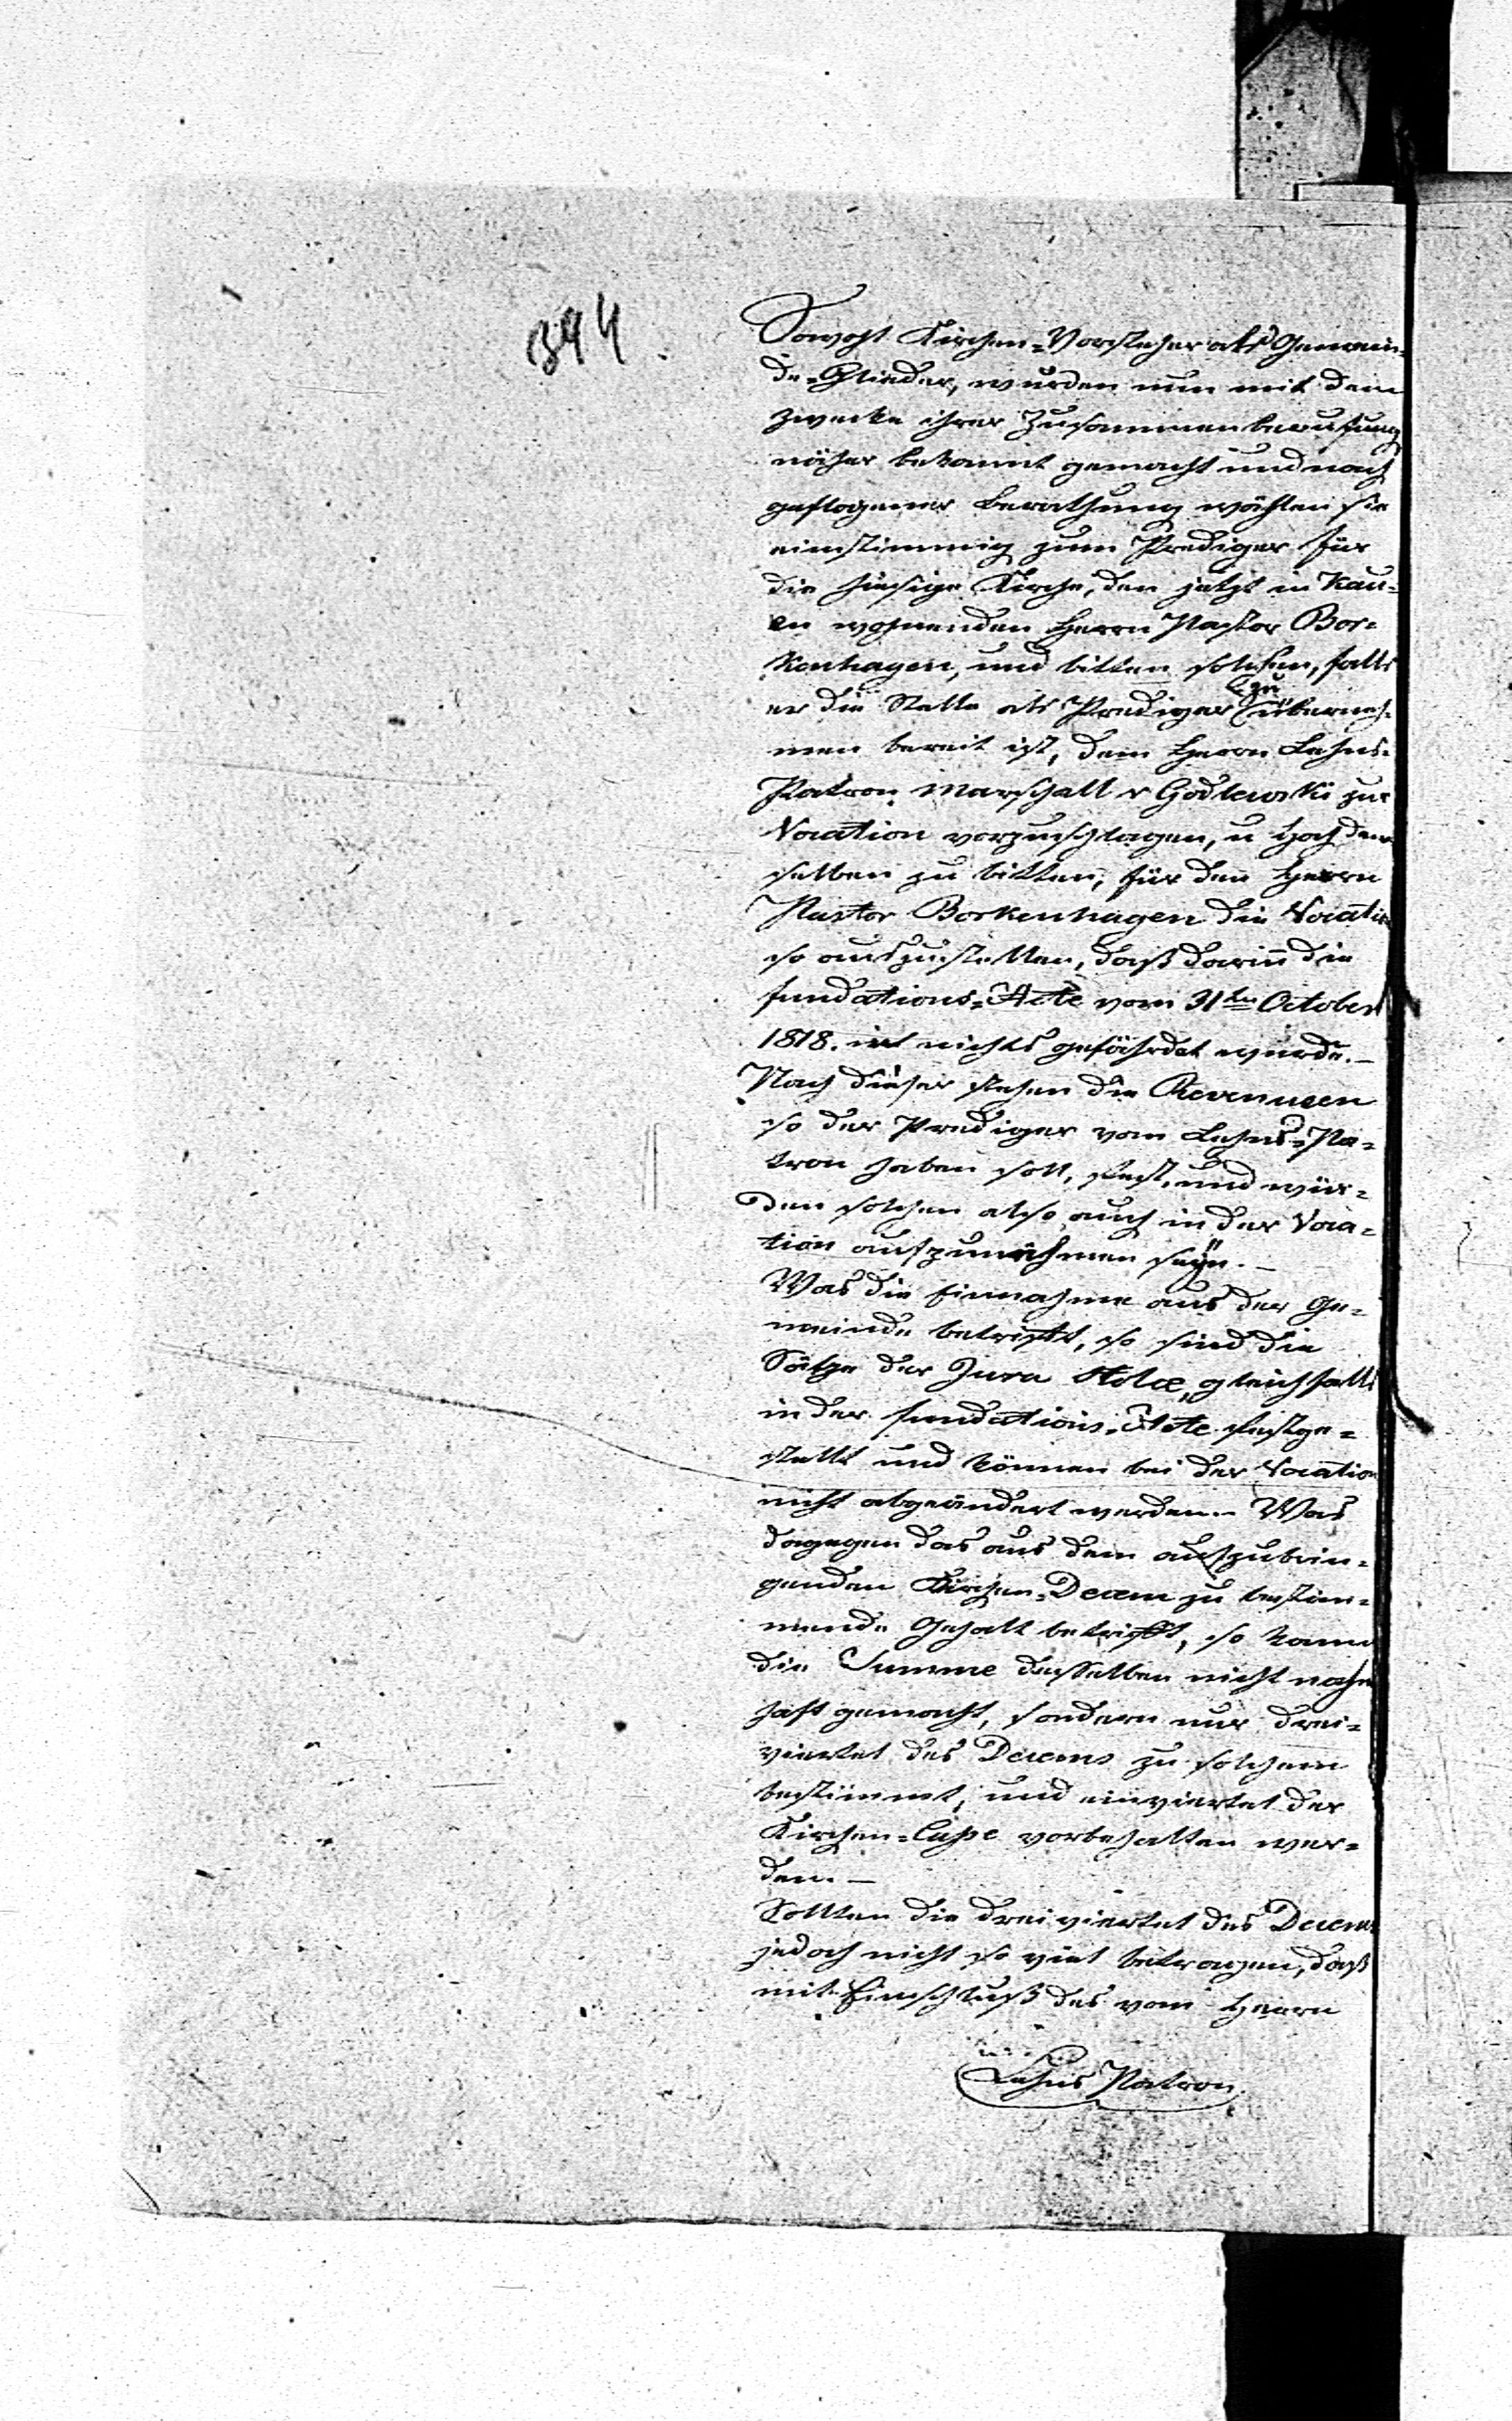 394
Sowohl Kirchen-Vorsteher als Gemein-
de-Glieder, wurden nun mit dem
Zwecke ihrer Zusammenberufung
näher bekannt gemacht und nach
gepflogener Berathung wählen sie
einstimmig zum Prediger für
die hiesige Kirche, den jetzt in Kau-
en wohnenden Herrn Pastor Bor-
kenhagen, und bitten solchen, falls
er die Stelle als Prediger zu überneh-
men bereit ist, dem Herrn Lehns-
Patron Marschall v Godlewski zur
Vocation vorzuschlagen, u Hochden-
selben zu bitten, für den Herrn
Pastor Borkenhagen die Vocation
so auszustellen, daß darin die
fundations-Acte vom 31ten October
1818. in nichts gefährdet wurde. —
Nach dieser stehen die Revenueen
so der Prediger vom Lehns-Pa-
tron haben soll, fest, und wür-
den solchen also auch in der Voca-
tion aufzunehmen seÿn. —
Was die Einnahme aus der Ge-
meinde betrifft, so sind die
Sätze der Jura Stolæ, gleichfalls
in der fundations-Acte festge-
stellt und können bei der Vocation
nicht abgeändert werden. Was
dagegen das aus dem aufzubrin-
genden Kirchen-Decem zu bestim-
mende Gehalt betrifft, so kann
die Summe desselben nicht nahm
haft gemacht, sondern nur drei-
viertel des Decems zu solchem
bestimmt, und einviertel der
Kirchen-Casse vorbehalten wer-
den. —
Sollten die dreiviertel des Decems
jedoch nicht so viel betragen, daß
mit Einschluß des vom Herrn
Lehns Patron